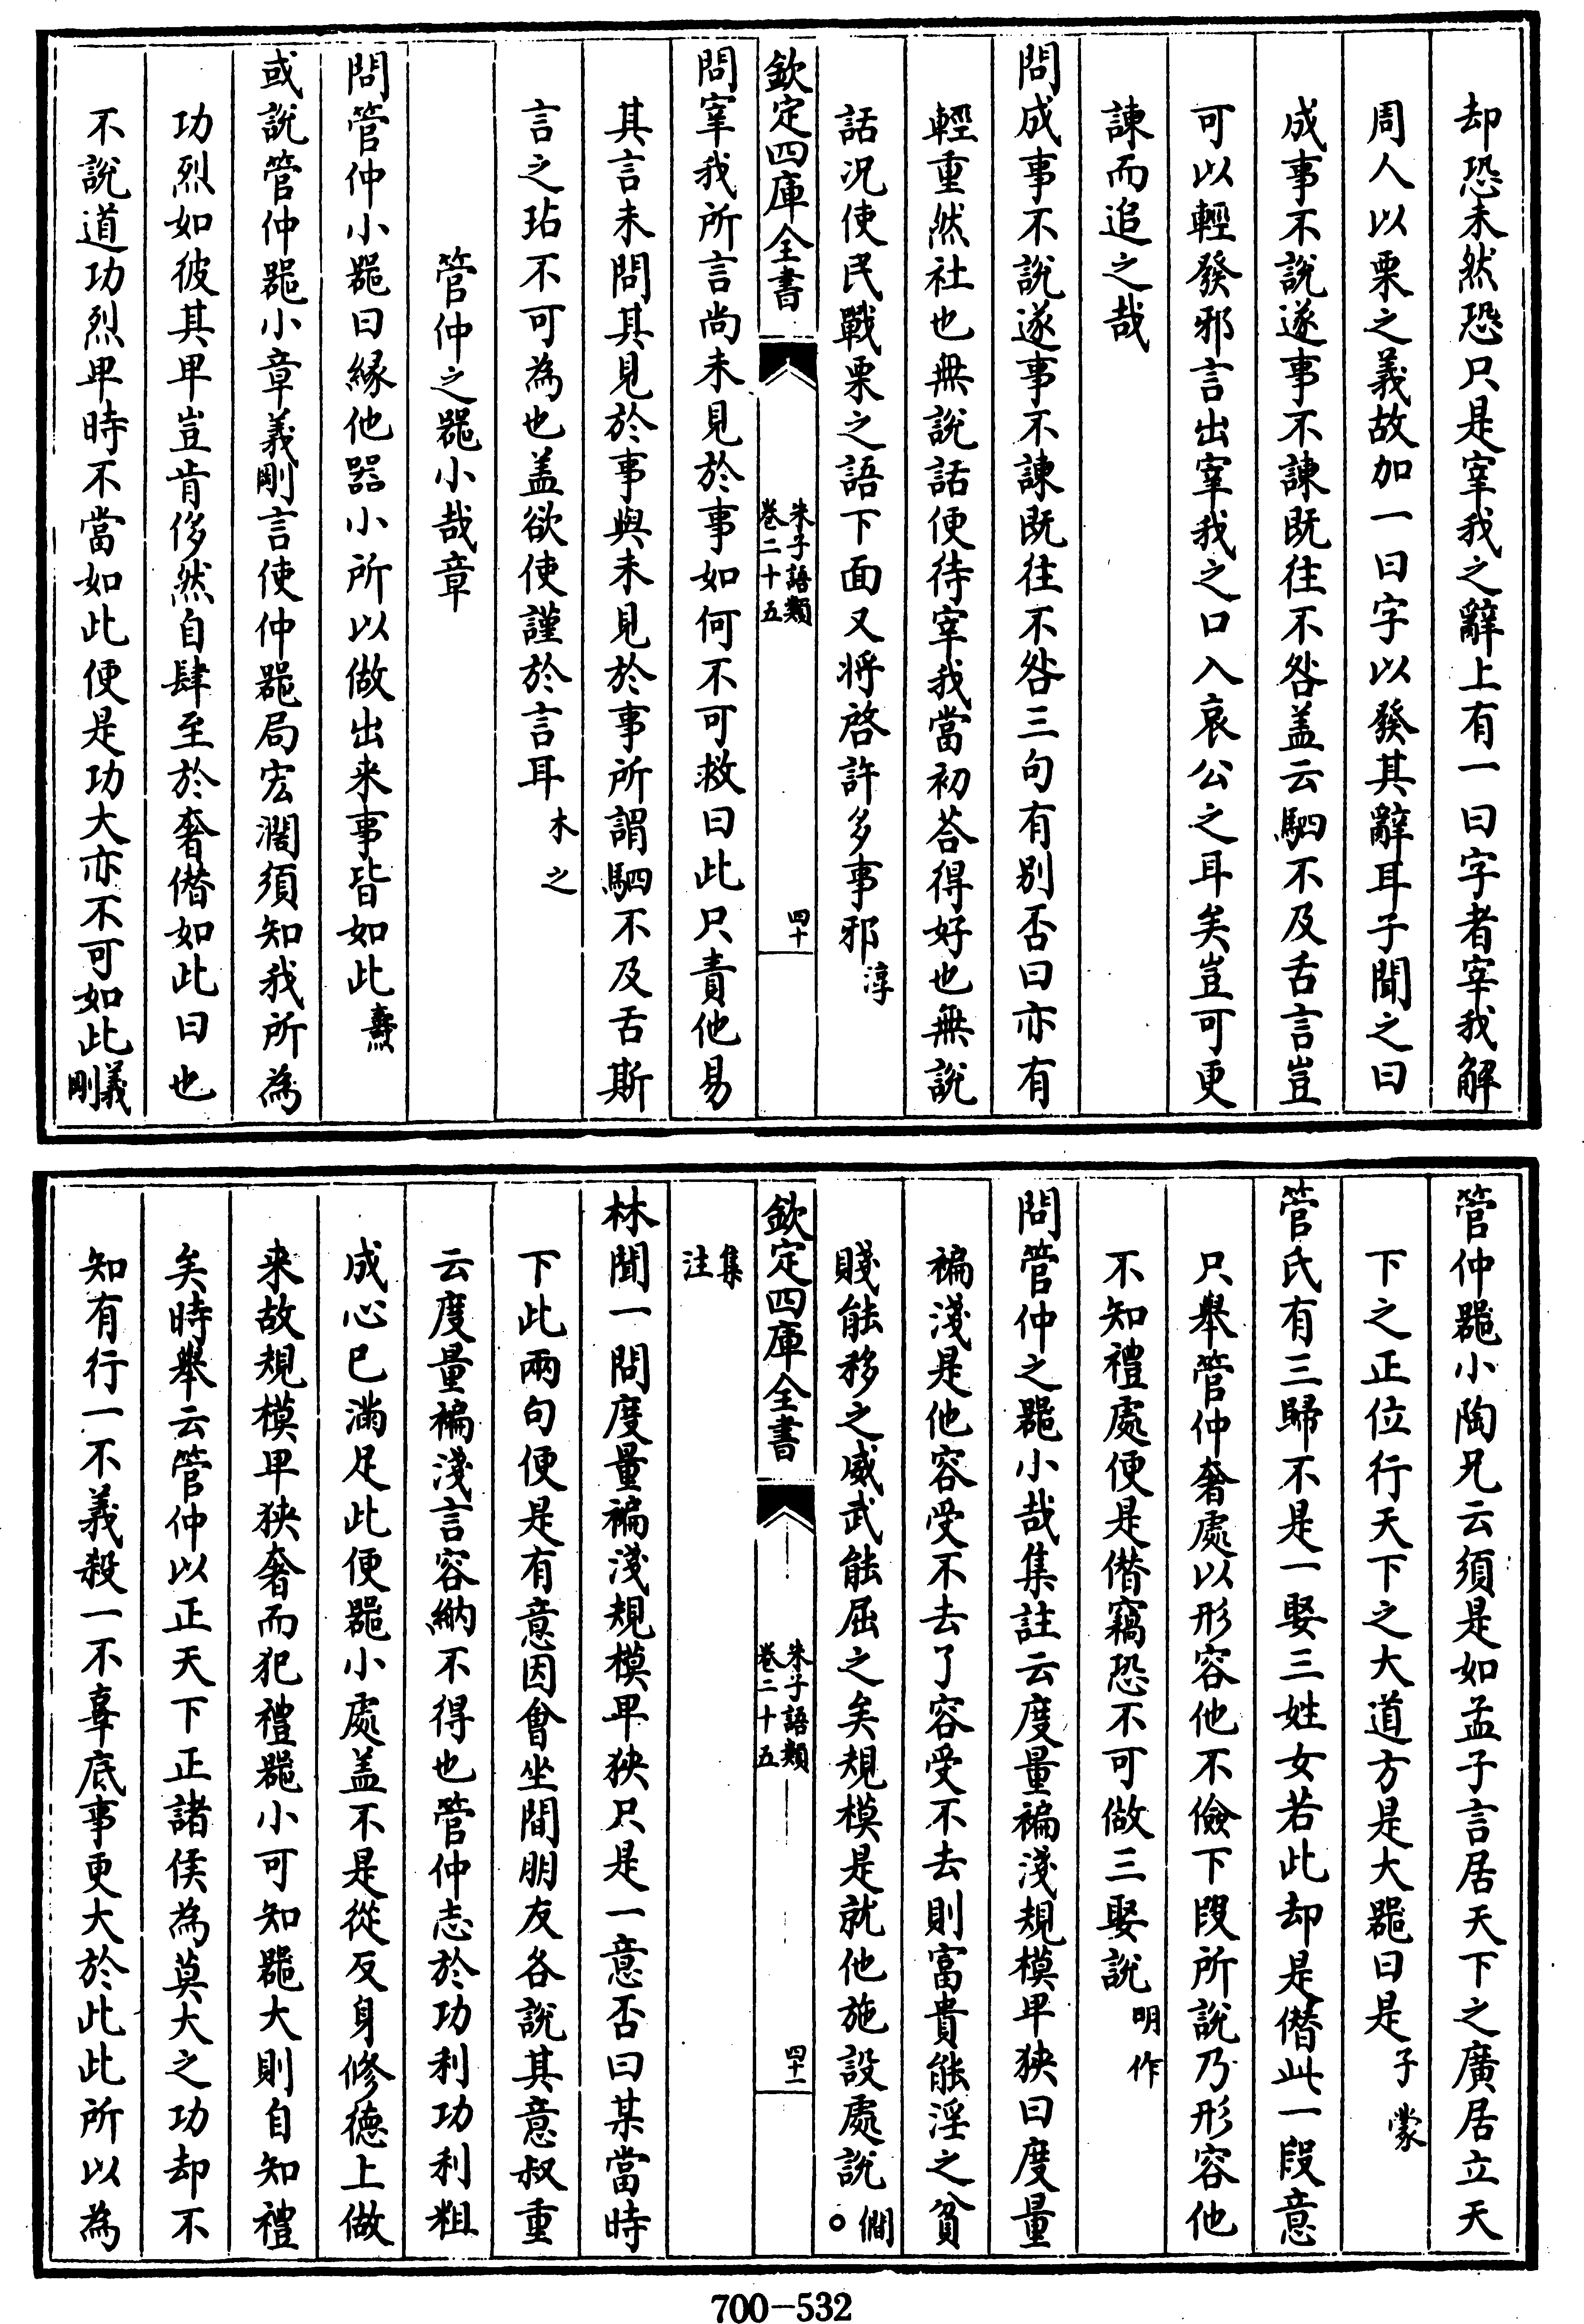 却恐未然恐只是宰我之辭上有一曰字者宰我解
周人以栗之義故加一曰字以發其辭耳子聞之曰
成事不說遂事不諫既往不咎盖云駟不及舌言豈
可以輕發邪言出宰我之口入哀公之耳矣豈可更
諫而追之哉
問成事不說遂事不諫既往不咎三句有別否曰亦有
輕重然社也無說話便待宰我當初荅得好也無說
話况使民戰栗之語下面又將啓許多事邪淳
欽定四庫全書
朱子語類
卷二十五
四十
問宰我所言尚未見於事如何不可救曰此只責他易
其言未問其見於事與未見於事所謂駟不及舌斯
言之玷不可為也盖欲使謹於言耳木之
管仲之噐小哉章
問管仲小噐曰緣他器小所以做出来事皆如此燾
或說管仲噐小章義剛言使仲噐局宏濶須知我所為
功烈如彼其卑豈肯侈然自肆至於奢僭如此曰也
不說道功烈卑時不當如此便是功大亦不可如此義剛
管仲噐小陶兄云須是如孟子言居天下之廣居立天
下之正位行天下之大道方是大噐曰是子蒙
管氏有三歸不是一娶三姓女若此却是僭此一段意
只舉管仲奢處以形容他不儉下段所說乃形容他
不知禮處便是僭竊恐不可做三娶說明作
問管仲之噐小哉集註云度量褊淺規模卑狹曰度量
褊淺是他容受不去了容受不去則富貴能淫之貧
賤能移之威武能屈之矣規模是就他施設處說僩○
欽定四庫全書
朱子語類
卷二十五
四十一
集注
林聞一問度量褊淺規模卑狹只是一意否曰某當時
下此兩句便是有意因會坐間朋友各說其意叔重
云度量褊淺言容納不得也管仲志於功利功利粗
成心已滿足此便噐小處盖不是從反身修德上做
来故規模卑狹奢而犯禮噐小可知噐大則自知禮
矣時舉云管仲以正天下正諸侯為莫大之功却不
知有行一不義殺一不辜底事更大於此此所以為
700-532